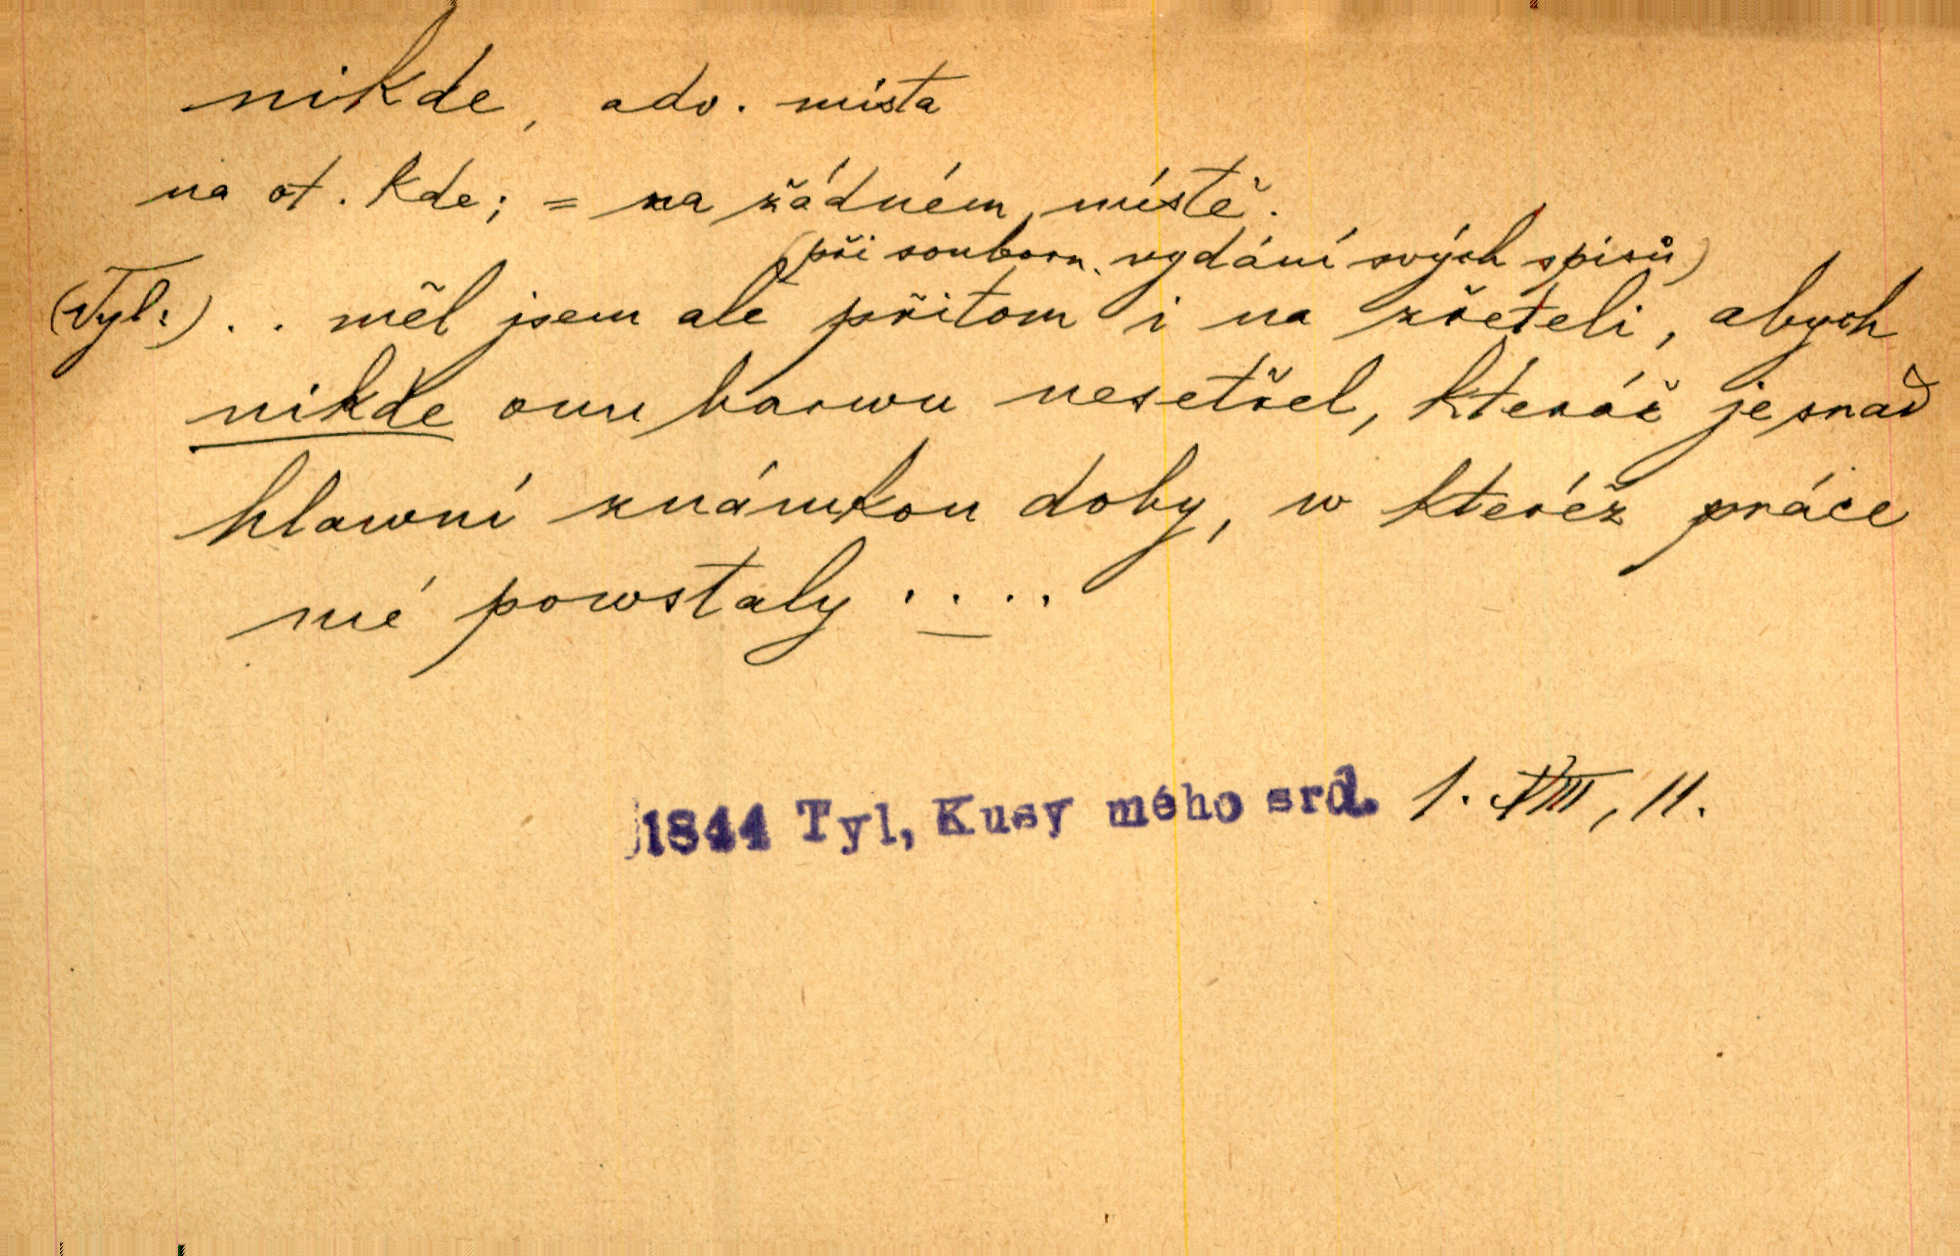 nikde, adv. místa
na ot. kde; = na žádném místě.
(při souborn. vydání svých spisů)
(Tyl:) . . měl jsem ale přitom i na zřeteli, abych
nikde onu barwu nesetřel, kteráž je snad
hlawní známkou doby, w kteréž práce
mé powstaly . . . .
1844 Tyl, Kusy mého srd. 1. VIII, 11.